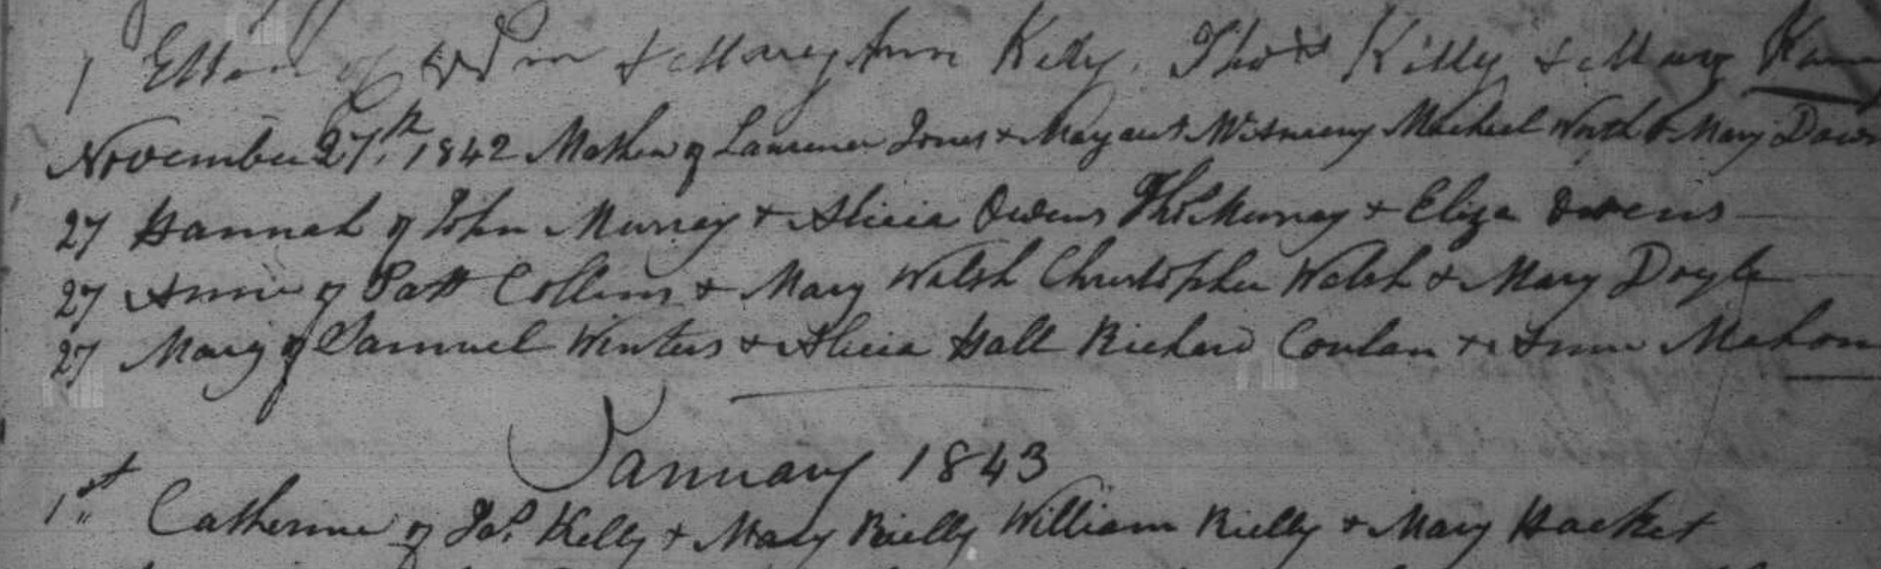 1 Ellen of Wm & Mary Anne Kelly. Thos Killy & Mary
November 27th, 1842 Mathew of Laurence Jones & Margaret Michael North & Mary
27 Hannah of John Murray & Alicia Owens Thos Murray & Eliza Owens
27 Anne of Patt Collins & Mary Walsh Christopher Walsh & Mary Doyle
27 Mary of Samuel Winters & Alicia Hall Richard Conlan & Anne Mahon
January 1843
1st Catherine of Jas. Kelly & Mary Rielly William Rielly & Mary Hacket